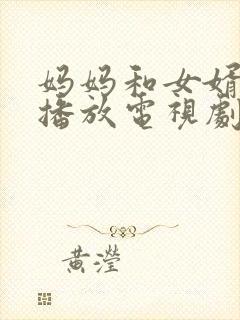 妈妈和女婿
播放電視劇
黄瀅